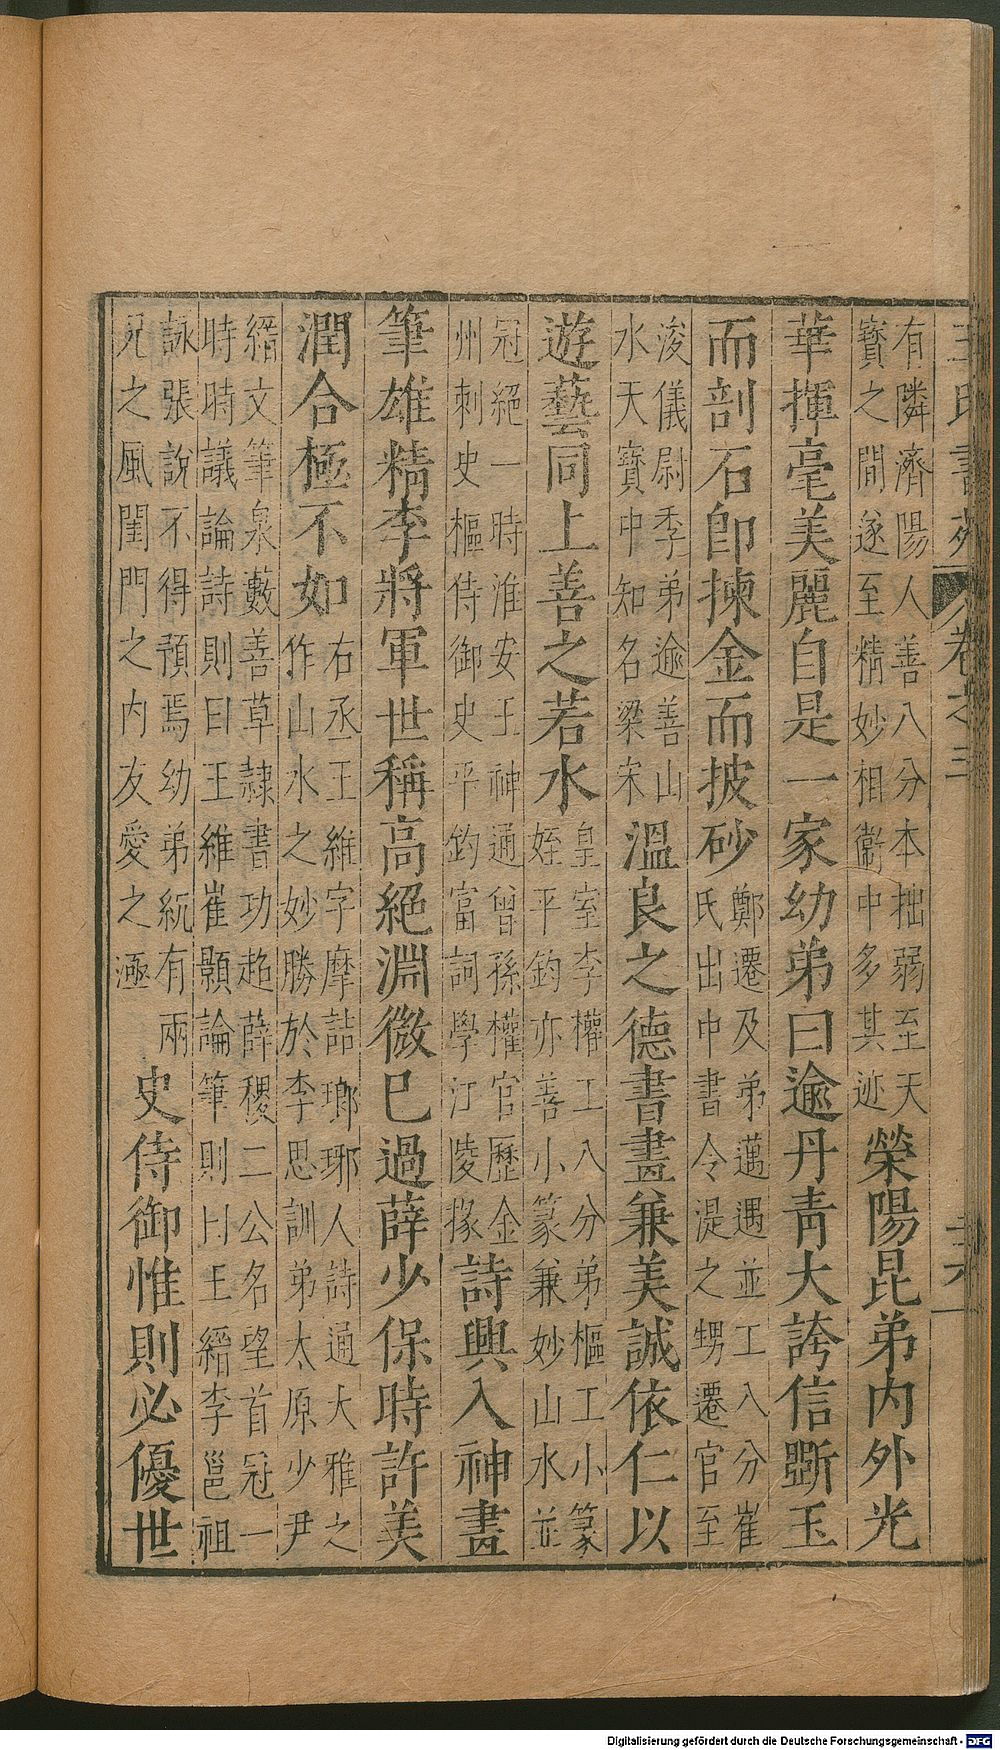 王氏書苑 卷之三
有隣濟陽人善八分本拙弱至天
寳之間遂至精妙相衞中多其迹
榮陽昆弟內外光
華揮毫美麗自是一家幼弟曰逾丹青大誇信斵玉
而剖石卽揀金而披砂
鄭遷及弟邁遇並工八分崔
氏出中書令湜之甥遷官至
浚儀尉季弟逾善山
水天寳中知名梁宋
溫良之德書畫兼美誠依仁以
遊藝同上善之若水
皇室李權工八分弟樞工小篆
姪平鈞亦善小篆兼妙山水並
冠絕一時淮安王神通曾孫權官歷金
州刺史樞侍御史平鈞富詞學江陵掾
詩興入神畫
筆雄精李將軍世稱高絕淵微已過薛少保時許美
潤合極不如
右丞王維字摩詰瑯琊人詩通大雅之
作山水之妙勝於李思訓弟太原少尹
縉文筆泉藪善草隷書功超薛稷二公名望首冠一
時時議論詩則曰王維崔顥論筆則曰王縉李邕祖
詠張說不得預焉幼弟紞有兩
兄之風閨門之內友愛之極
史侍御惟則必優世
Digitalisierung gefördert durch die Deutsche Forschungsgemeinschaft - DFG